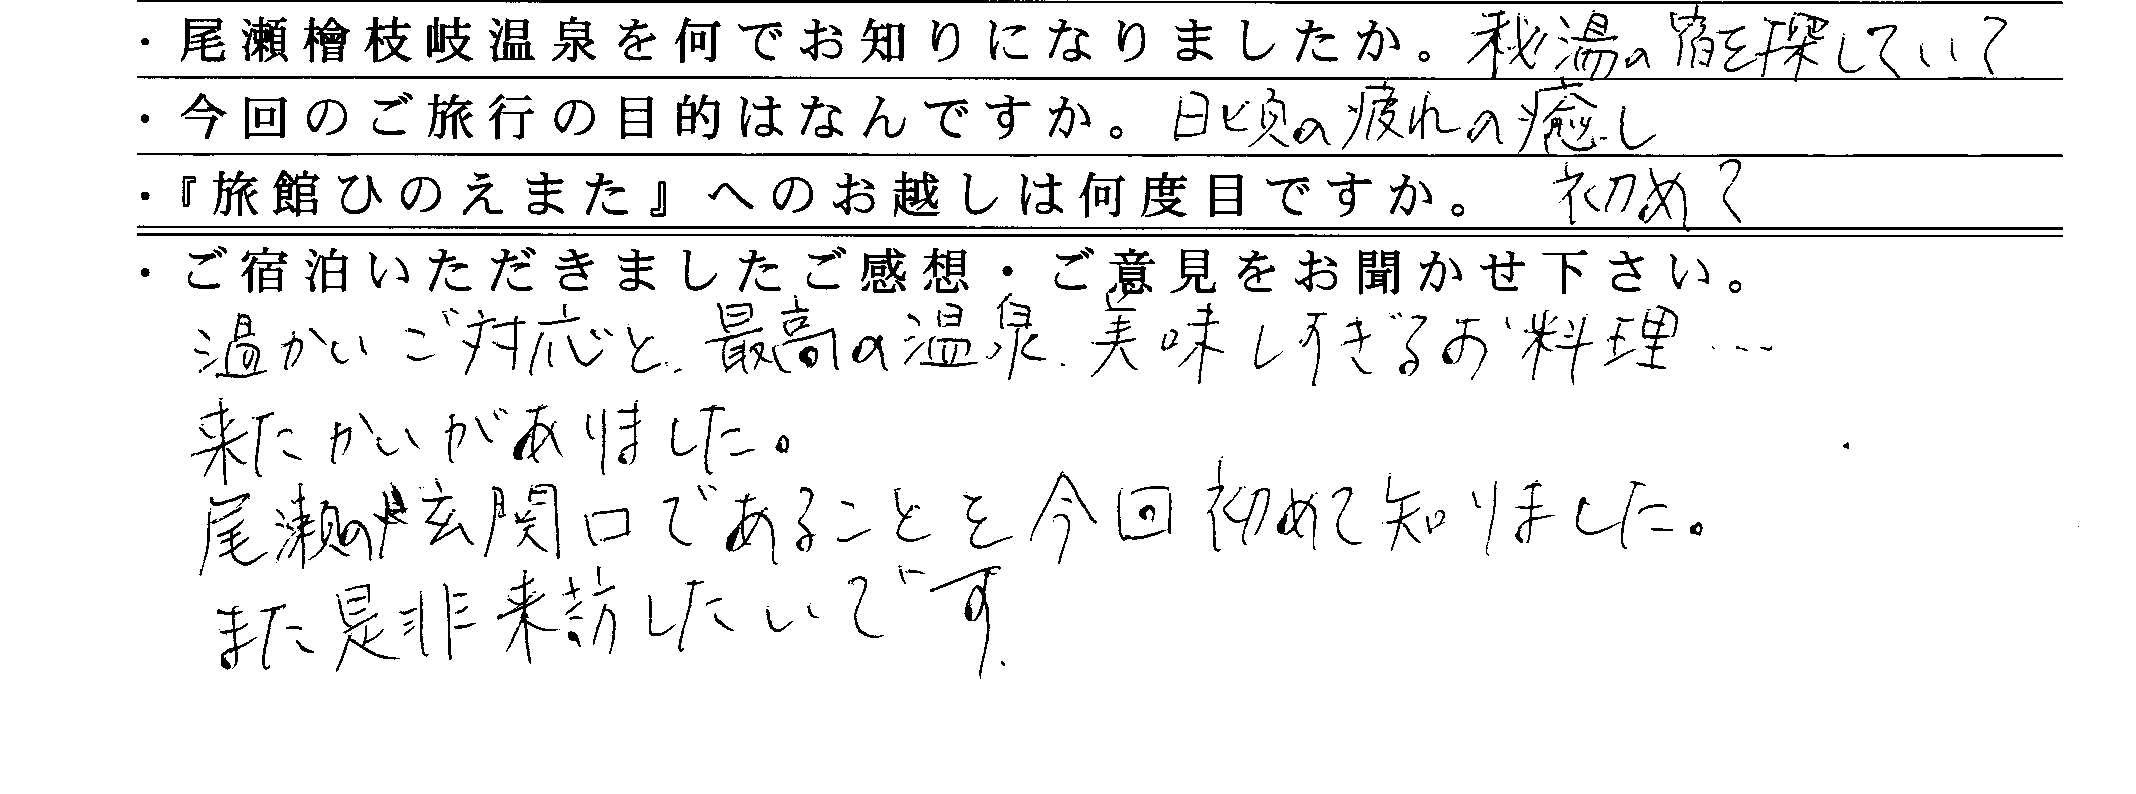 ・尾瀬檜枝岐温泉を何でお知りになりましたか。秘湯の宿を探していて
・今回のご旅行の目的はなんですか。日頃の疲れの癒し
・『旅館ひのえまた』へのお越しは何度目ですか。 初めて
・ご宿泊いただきましたご感想・ご意見をお聞かせ下さい。
温かいご対応と、最高の温泉、美味しすぎるお料理…
来たかいがありました。
尾瀬の玄関口であることを今回初めて知りました。
また是非来訪したいです。